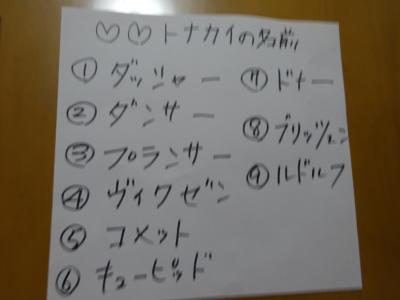 ♡♡トナカイの名前
① ダッシャー
② ダンサー
③ プランサー
④ ヴィクゼン
⑤ コメット
⑥ キューピッド
⑦ ドナー
⑧ ブリッツェン
⑨ ルドルフ